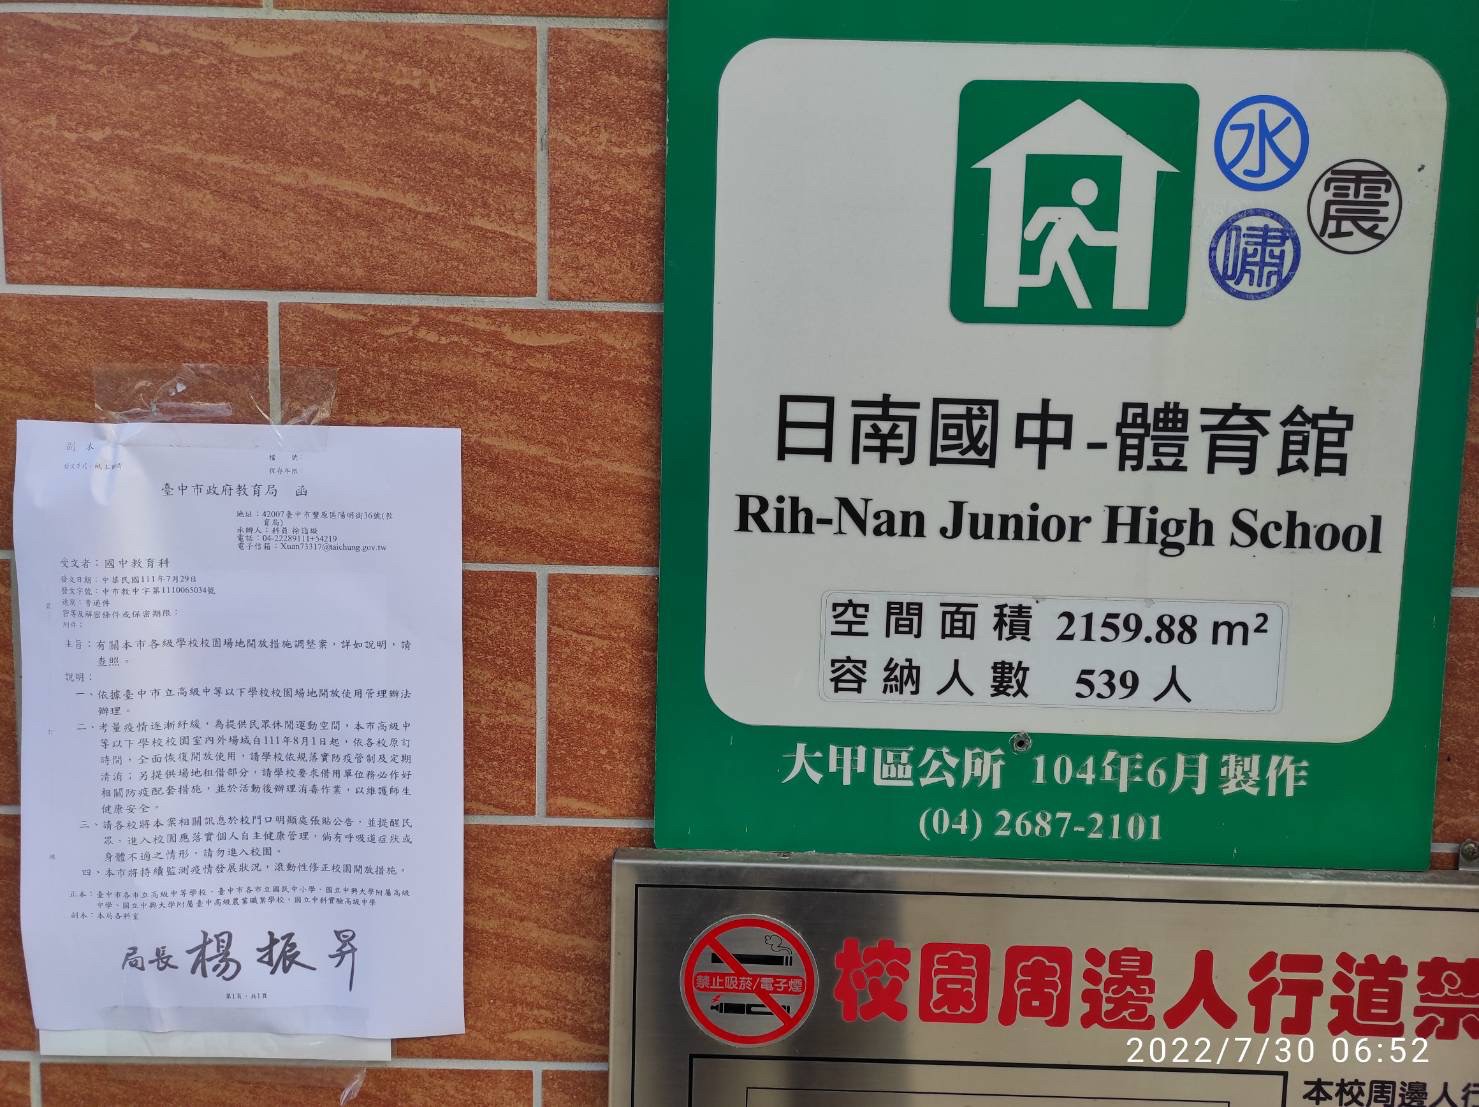 副本
檔 號：
保存年限：
臺中市政府教育局 函
地址：42007臺中市豐原區陽明街36號(教
育局)
電話：04-22289111#54219
電子信箱：Xuan73317@taichung.gov.tw
受文者：國中教育科
發文日期：中華民國111年7月29日
發文字號：中市教中字第1110065034號
速別：普通件
密等及解密條件或保密期限：
附件：
主旨：有關本市各級學校校園場地開放措施調整案，詳如說明，請
查照。
說明：
一、依據臺中市立高級中等以下學校校園場地開放使用管理辦法
辦理。
二、考量疫情逐漸紓緩，為提供民眾休閒運動空間，本市高級中
等以下學校校園室內外場域自111年8月1日起，依各校原訂
時間，全面恢復開放使用，請學校依規落實防疫管制及定期
清消；另提供場地租借部分，請學校要求借用單位務必作好
相關防疫配套措施，並於活動後辦理消毒作業，以維護師生
健康安全。
三、請各校將本案相關訊息於校門口明顯處張貼公告，並提醒民
眾，進入校園應落實個人自主健康管理，倘有呼吸道症狀或
身體不適之情形，請勿進入校園。
四、本市將持續監測疫情發展狀況，滾動性修正校園開放措施。
正本：臺中市各市立高級中等學校、臺中市各市立國民中小學、國立中興大學附屬高級
中學、國立中興大學附屬臺中高級農業職業學校、國立中科實驗高級中學
副本：本局各科室
局長 楊振昇
第1頁，共1頁
水
震
嘯
日南國中-體育館
Rih-Nan Junior High School
空間面積 2159.88 m²
容納人數 539 人
大甲區公所 104年6月製作
(04) 2687-2101
禁止吸菸/電子煙
校園周邊人行道禁
本校周邊人行
2022/7/30 06:52